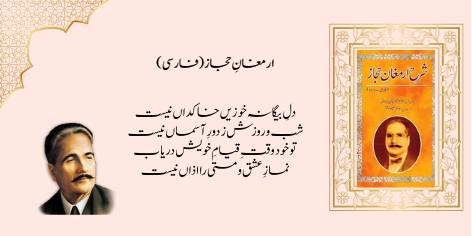 ارمغانِ حجاز (فارسی)
دل بیگانہ خو زیں خاکداں نیست
شب و روزش ز دورِ آسماں نیست
تو خود وقتِ قیامِ خویش دریاب
نمازِ عشق و مستی را اذاں نیست
شرح ارمغان حجاز